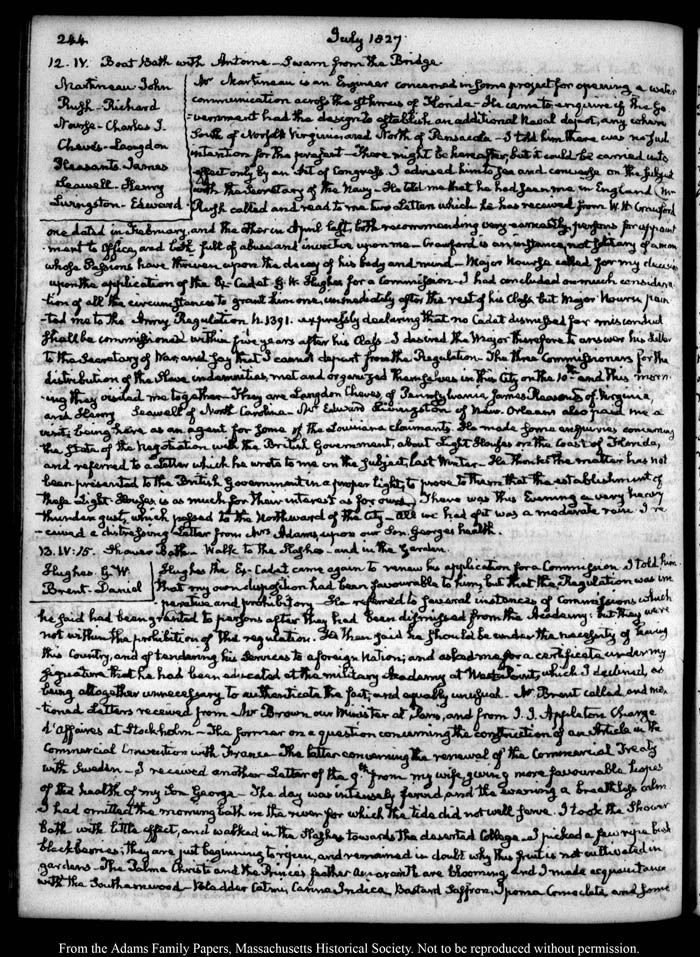 244 July 1827
12. IV. Boat Bath with Antoine - Swam from the Bridge.
Martineau John
Rush - Richard
Nourse - Charles J.
Cheves - Langdon
Pleasants - James
Seawell - Henry
Livingston - Edward
Mr Martineau is an Engineer concerned in some project for opening a water
communication across the Isthmus of Florida - He came to enquire if the Go-
-vernment had the design to establish an additional Naval depot, any where
South of Norfolk Virginia and North of Pensacola - I told him there was no such
intention for the present - There might be hereafter, but it could be carried into
effect only by an Act of Congress. I advised him to see and converse on the subject
with the Secretary of the Navy - He told me that he had seen me in England. Mr
Rush called and read to me two Letters which he has received from W. H. Crawford
one dated in February, and the other in April last, both recommending very earnestly persons for appoint
-ment to Office, and both full of abuse and invective upon me - Crawford is an instance, not solitary of a man
whose Passions have thriven upon the decay of his body and mind - Major Nourse called for my decision
upon the application of the Ex-Cadet G. W. Hughes for a Commission - I had concluded on much considera-
-tion of all the circumstances to grant him one, immediately after the rest of his Class but Major Nourse poin-
-ted me to the Army Regulation N. 1391. expressly declaring that no Cadet dismissed for misconduct
shall be commissioned within five years after his Class - I desired the Major therefore to answer his Letter
to the Secretary of War, and say that I cannot depart from the Regulation - The three Commissioners for the
distribution of the Slave indemnities, met and organized themselves in this City on the 10th and this morn-
-ing they visited me together - They are Langdon Cheves of Pennsylvania James Pleasants of Virginia,
and Henry Seawell of North Carolina - Mr Edward Livingston of New Orleans also paid me a
visit; being here as an agent for some of the Louisiana claimants. He made some enquiries concerning
the State of the Negotiation with the British Government, about Light Houses on the Coast of Florida,
and referred to a Letter which he wrote to me on the subject, last Winter - He thinks the matter has not
been presented to the British Government in a proper light, to prove to them that the establishment of
these Light-Houses is as much for their interest as for ours. There was this Evening a very heavy
thunder gust, which passed to the Northward of the City - All we had of it was a moderate rain. I re-
-ceived a distressing Letter from Mrs Adams, upon our Son George's health.
13. IV:15. Shower Bath - Walk to the Slashes - and in the Garden.
Hughes. G. W.
Brent - Daniel
Hughes the Ex-Cadet came again to renew his application for a Commission. I told him
that my own disposition had been favourable to him, but that the Regulation was im-
-perative and prohibitory - He referred to several instances of Commissions which
he said had been granted to persons after they had been dismissed from the Academy: but they were
not within the prohibition of the regulation. He then said he should be under the necessity of leaving
this Country, and of tendering his services to a foreign Nation; and asked me for a certificate under my
signature that he had been educated at the military Academy at West-Point, which I declined, as
being altogether unnecessary to authenticate the fact, and equally unusual. Mr Brent called and men-
-tioned Letters received from Mr Brown our Minister at Paris, and from J. J. Appleton Chargé
d'affaires at Stockholm - The former on a question concerning the construction of an Article in the
Commercial Convention with France - The latter concerning the renewal of the Commercial Treaty
with Sweden - I received another Letter of the 9th from my wife, giving more favourable hopes
of the health of my Son George - The day was intensely fervid, and the evening a breathless calm
I had omitted the morning bath in the river for which the tide did not well serve. I took the Shower
bath with little effect, and walked in the Slashes towards the deserted College - I picked a few ripe bush
blackberries; they are just beginning to ripen, and remained in doubt why this fruit is not cultivated in
gardens - The Palma Christi and the Princes feather Amaranth are blooming, and I made acquaintance
with the Southernwood - Bladder Ketmi, Canna Indica, Bastard Saffron, Ipomea Comoclata, and some
From the Adams Family Papers, Massachusetts Historical Society. Not to be reproduced without permission.